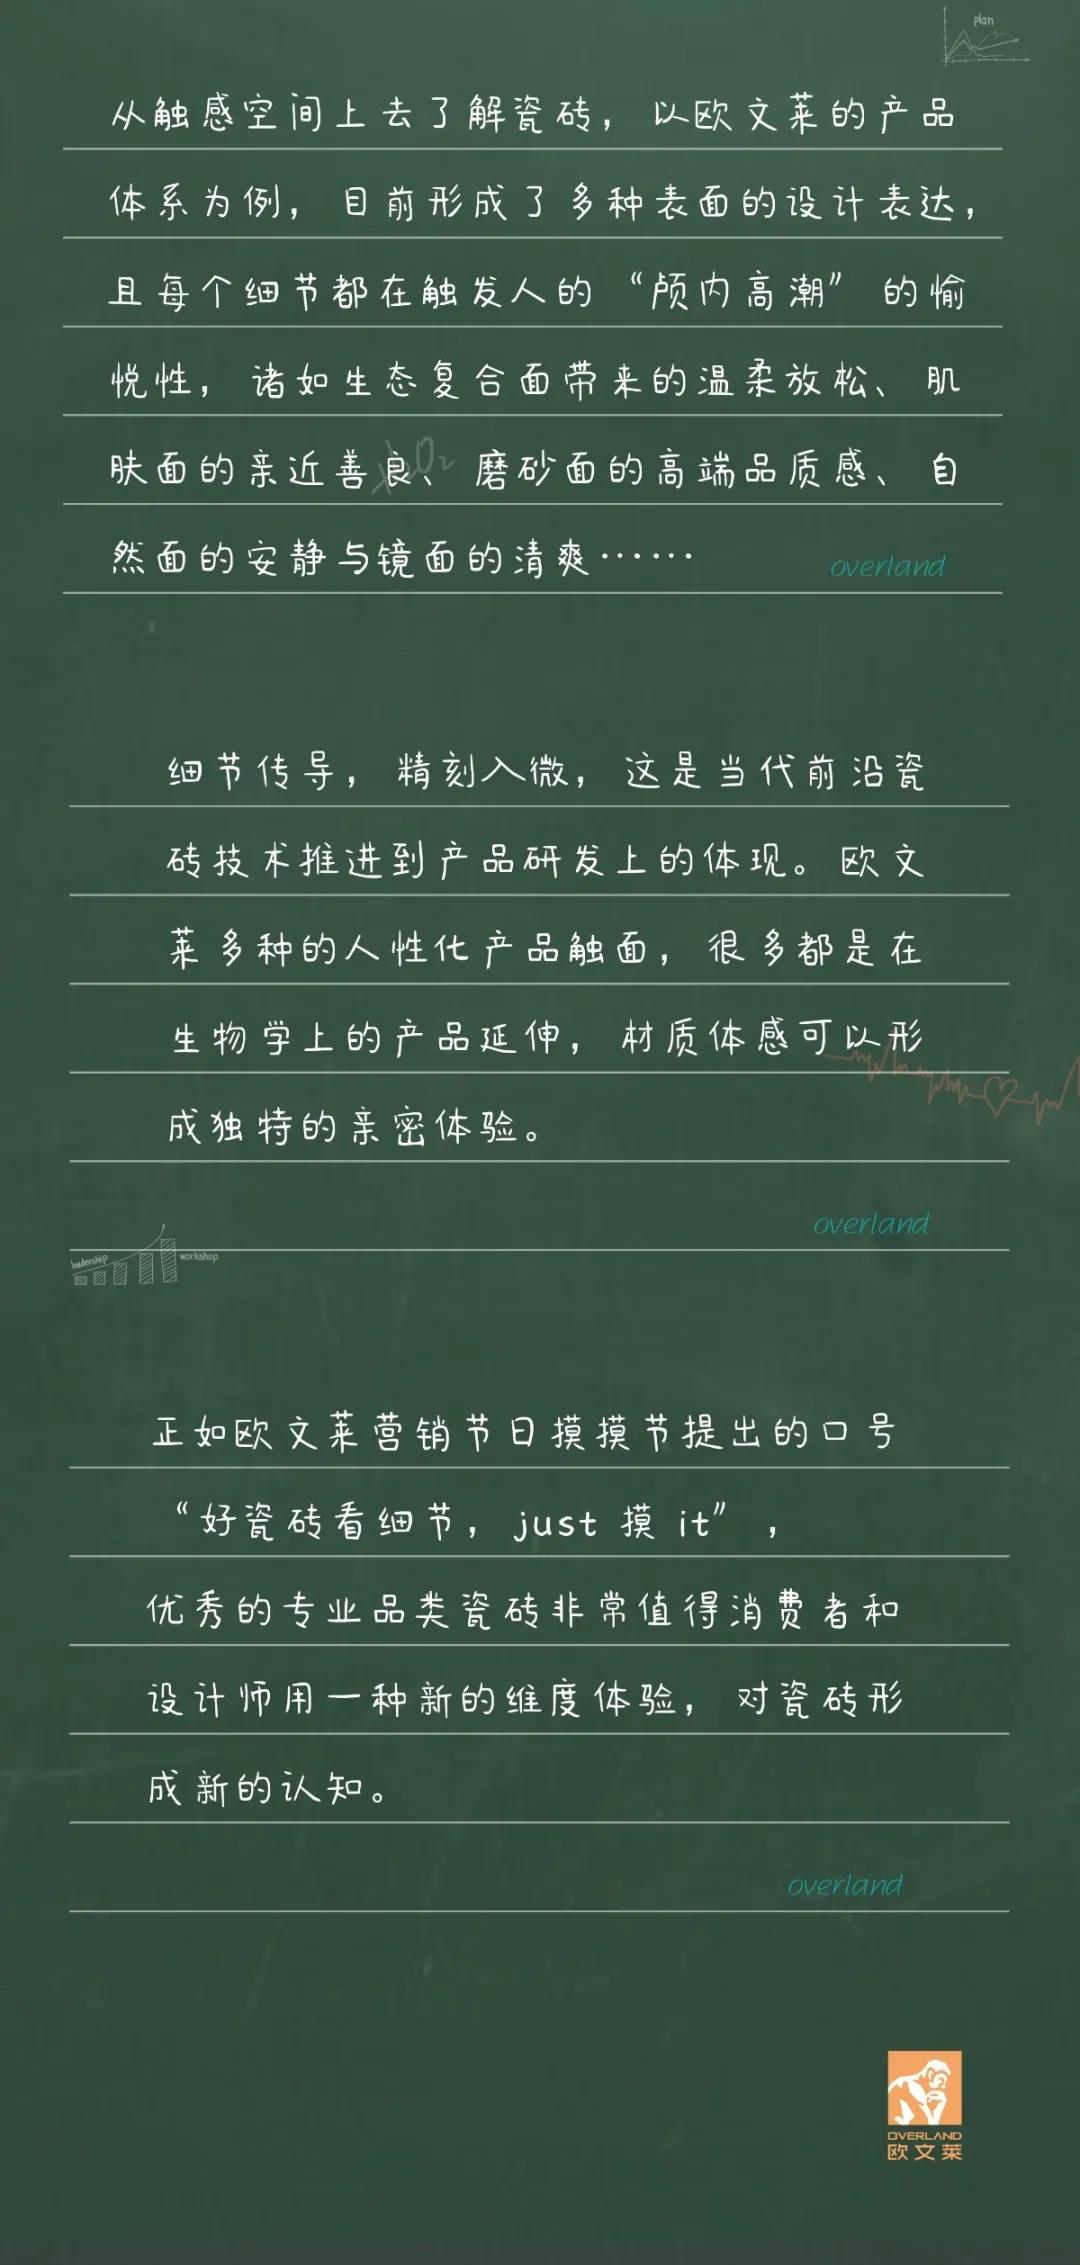 plan
从触感空间上去了解瓷砖，以欧文莱的产品
体系为例，目前形成了多种表面的设计表达，
且每个细节都在触发人的“颅内高潮”的愉
悦性，诸如生态复合面带来的温柔放松、肌
肤面的亲近善良、磨砂面的高端品质感、自
然面的安静与镜面的清爽……
overland
细节传导，精刻入微，这是当代前沿瓷
砖技术推进到产品研发上的体现。欧文
莱多种的人性化产品触面，很多都是在
生物学上的产品延伸，材质体感可以形
成独特的亲密体验。
overland
leadership
workshop
正如欧文莱营销节日摸摸节提出的口号
“好瓷砖看细节，just 摸 it”，
优秀的专业品类瓷砖非常值得消费者和
设计师用一种新的维度体验，对瓷砖形
成新的认知。
overland
OVERLAND
欧文莱